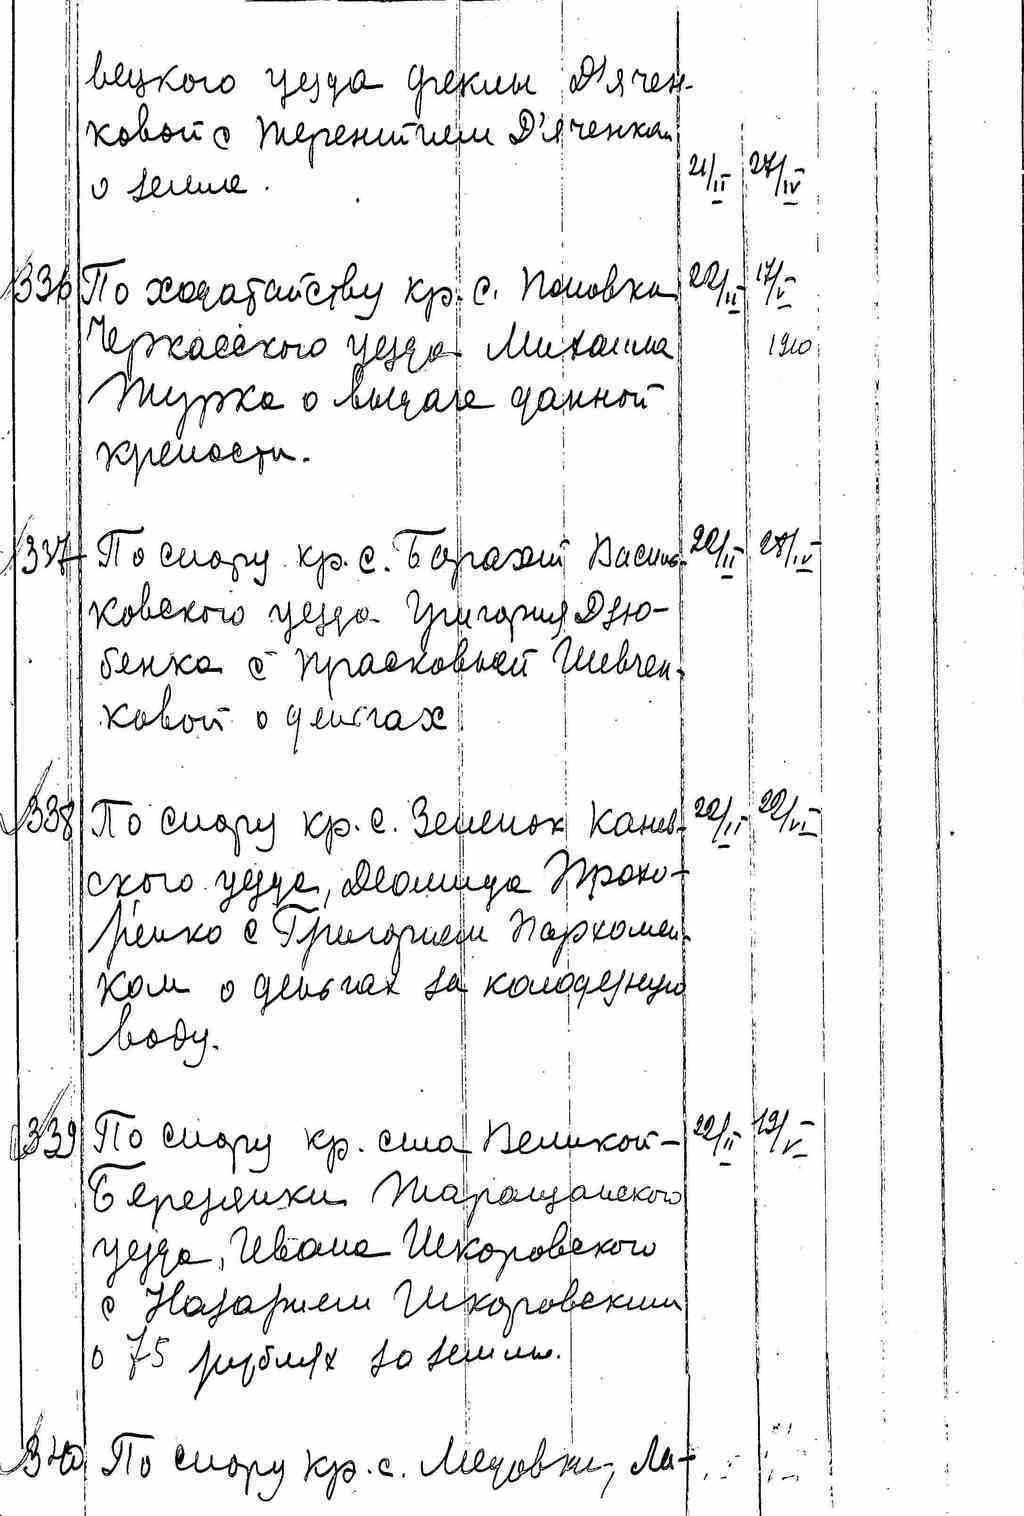 вецкого уезда Феклы Д'ячен-
ковой с Терентием Д'яченкам
о земле.
21/II 27/IV
336 По ходатайству кр. с. Поповка 22/II 17/V
Черкасского уезда Михаила 1910
Журка о выдаче данной
крепости.
337 По спору кр. с. Барахты Василь- 22/II 28/IV
ковского уезда Григория Дзю-
бенка с Прасковьей Шевчен-
ковой о деньгах
338 По спору кр. с. Зеленок Канев- 22/II 22/VI
ского уезда, Диомида Прохо-
ренко с Григорием Пархомен-
ком о деньгах за колодезную
воду.
339 По спору кр. села Великой- 22/II 19/V
Березянки Таращанского
уезда, Ивана Шкоровского
с Назарием Шкоровским
о 75 рублях за землю.
340 По спору кр. с. Медовки, Ли-